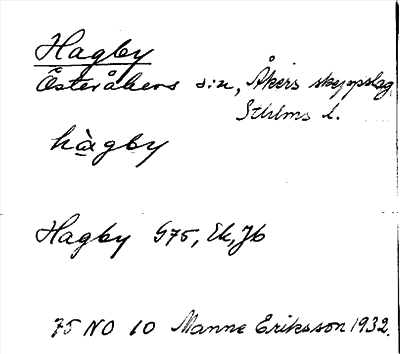 Hagby
Österåkers sn, Åkers skeppslag
Sthlms l.
hàgby
Hagby G75, Ek, Jb
75 NO 10 Manne Eriksson 1932.